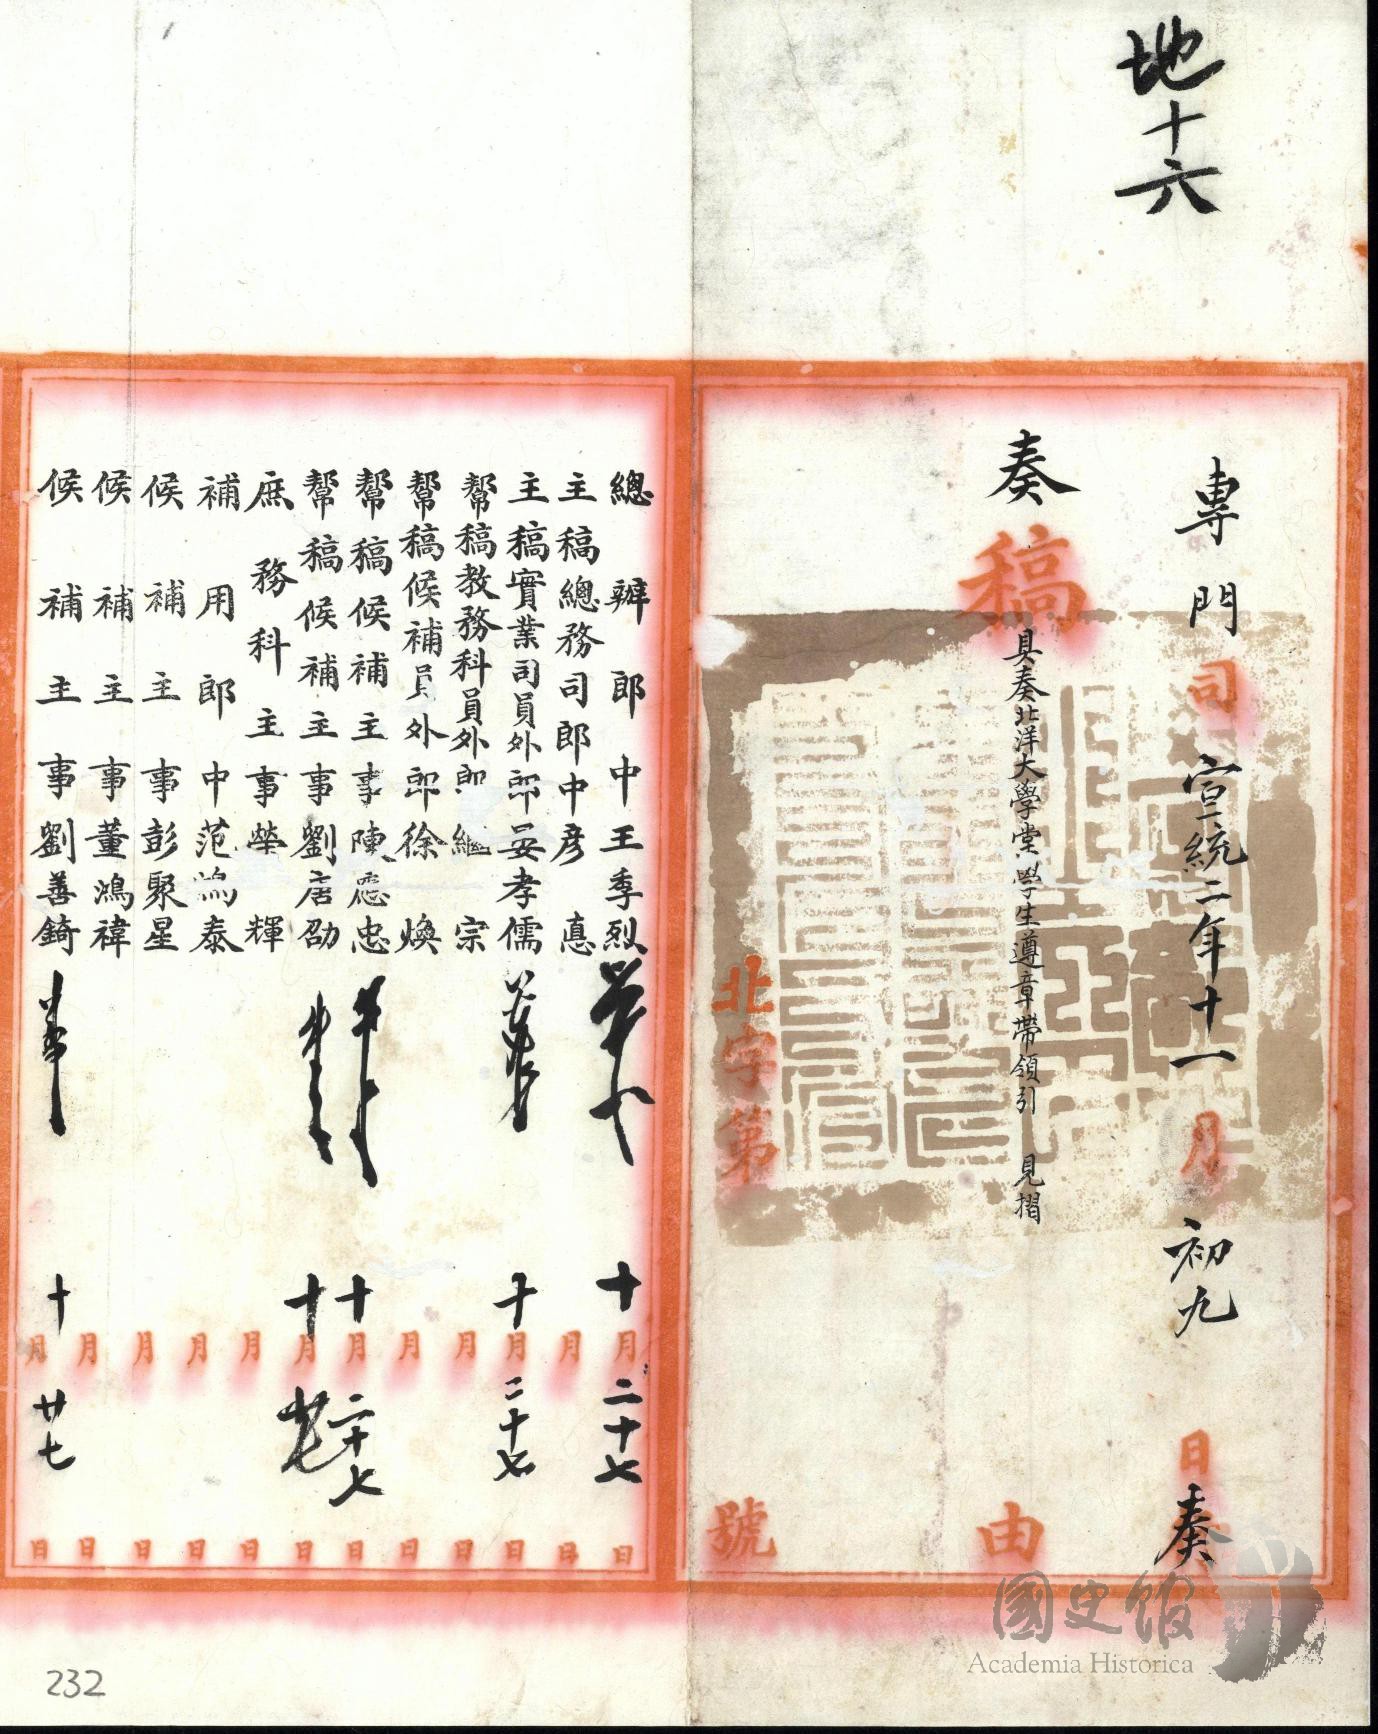 地十六
專門司 宣統二年十一月初九日奏
奏稿 具奏北洋大學堂學生遵章帶領引 見摺 由
北字第 號
總辦郎中王季烈 十月二十七日
主稿總務司郎中彥惪 月 日
主稿實業司員外郎晏孝儒 十月二十七日
幫稿教務科員外郎繼宗 月 日
幫稿候補員外郎徐煥 月 日
幫稿候補主事陳應忠 十月二十七日
幫稿候補主事劉唐劭 十月 日
庶務科主事榮輝 月 日
補用郎中范鴻泰 月 日
候補主事彭聚星 月 日
候補主事董鴻禕 月 日
候補主事劉善錡 十月廿七日
國史館
Academia Historica
232